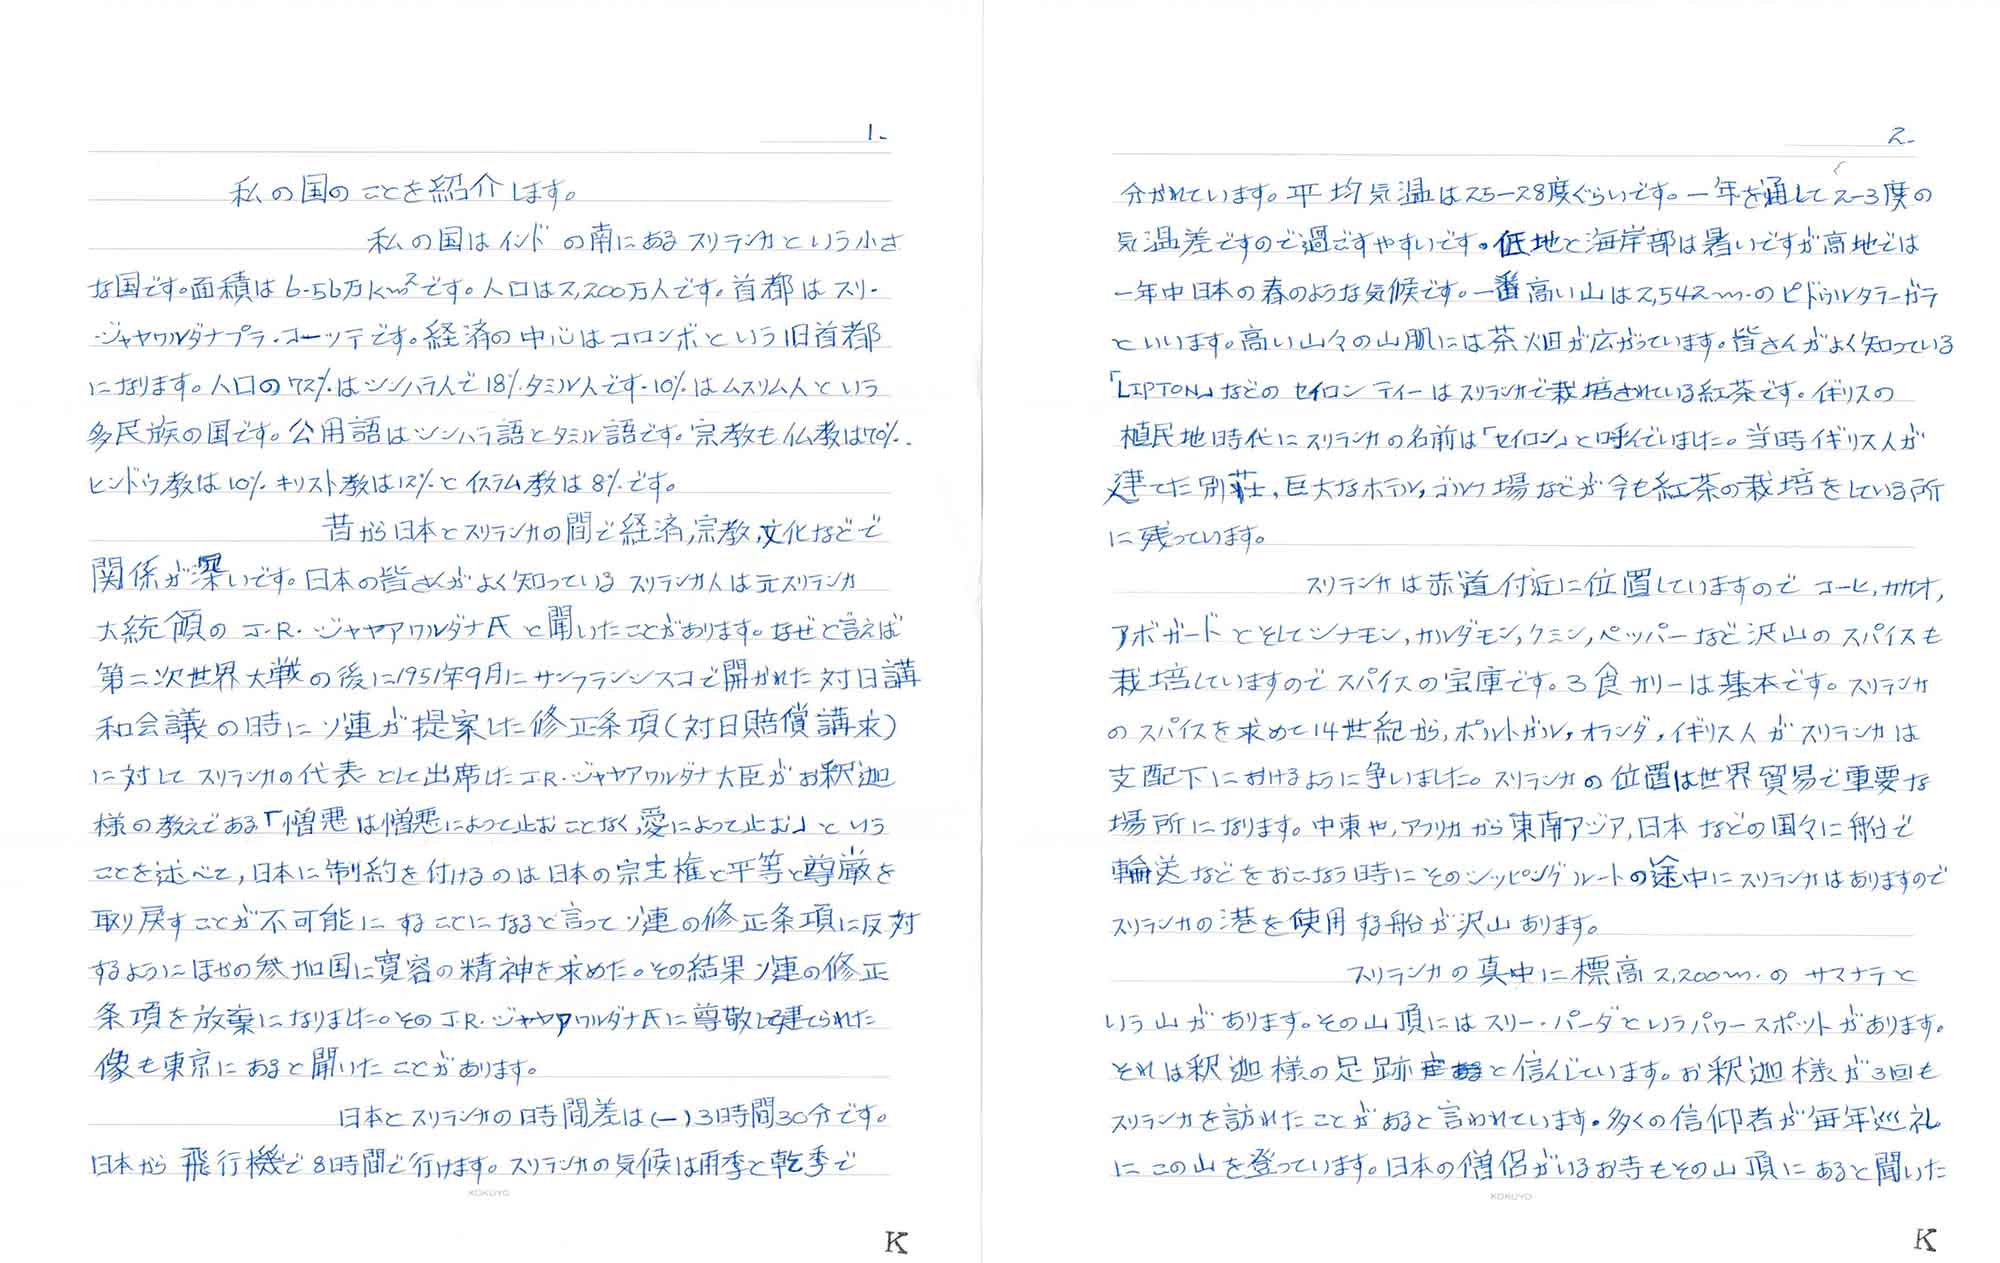 1-
私の国のことを紹介します。
私の国はインドの南にあるスリランカという小さ
な国です。面積は6.56万km²です。人口は2,200万人です。首都はスリ・
・ジャヤワルダナプラ・コーッテです。経済の中心はコロンボという旧首都
になります。人口の72%はシンハラ人で18%タミル人です。10%はムスリム人という
多民族の国です。公用語はシンハラ語とタミル語です。宗教も仏教は70%.
ヒンドウ教は10%キリスト教は12%とイスラム教は8%です。
昔から日本とスリランカの間で経済,宗教,文化などで
関係が深いです。日本の皆さんがよく知っているスリランカ人は元スリランカ
大統領のJ.R.ジャヤアワルダナ氏と聞いたことがあります。なぜと言えば
第二次世界大戦の後に1951年9月にサンフランシスコで開かれた対日講
和会議の時にソ連が提案した修正条項(対日賠償講求)
に対してスリランカの代表として出席したJ.R.ジャヤアワルダナ大臣がお釈迦
様の教えである「憎悪は憎悪によって止むことなく,愛によって止む」という
ことを述べて,日本に制約を付けるのは日本の宗主権と平等と尊厳を
取り戻すことが不可能にすることになると言ってソ連の修正条項に反対
するようにほかの参加国に寛容の精神を求めた。その結果ソ連の修正
条項を放棄になりました。そのJ.R.ジャヤアワルダナ氏に尊敬して建てられた
像も東京にあると聞いたことがあります。
日本とスリランカの時間差は(-)3時間30分です。
日本から飛行機で8時間で行けます。スリランカの気候は雨季と乾季で
KOKUYO
K
2-
分かれています。平均気温は25-28度ぐらいです。一年を通して2-3度の
気温差ですので過ごすやすいです。低地と海岸部は暑いですが高地では
一年中日本の春のような気候です。一番高い山は2,542m.のピドゥルタラーガラ
といいます。高い山々の山肌には茶畑が広がっています。皆さんがよく知っている
「LIPTON」などのセイロンティーはスリランカで栽培されている紅茶です。イギリスの
植民地時代にスリランカの名前は「セイロン」と呼んでいました。当時イギリス人が
建てた別荘,巨大なホテル,ゴルフ場などが今も紅茶の栽培をしている所
に残っています。
スリランカは赤道付近に位置していますのでコーヒ,カカオ,
アボガードとそしてシナモン,カルダモン,クミン,ペッパーなど沢山のスパイスも
栽培していますのでスパイスの宝庫です。3食カリーは基本です。スリランカ
のスパイスを求めて14世紀から,ポルトガル,オランダ,イギリス人がスリランカは
支配下におけるように争いました。スリランカの位置は世界貿易で重要な
場所になります。中東や,アフリカから東南アジア,日本などの国々に船で
輸送などをおこなう時にそのシッピングルートの途中にスリランカはありますので
スリランカの港を使用する船が沢山あります。
スリランカの真中に標高2,200m.のサマナラと
いう山があります。その山頂にはスリー・パーダというパワースポットがあります。
それは釈迦様の足跡と信んじています。お釈迦様が3回も
スリランカを訪れたことがあると言われています。多くの信仰者が毎年巡礼
にこの山を登っています。日本の僧侶がいるお寺もその山頂にあると聞いた
KOKUYO
K